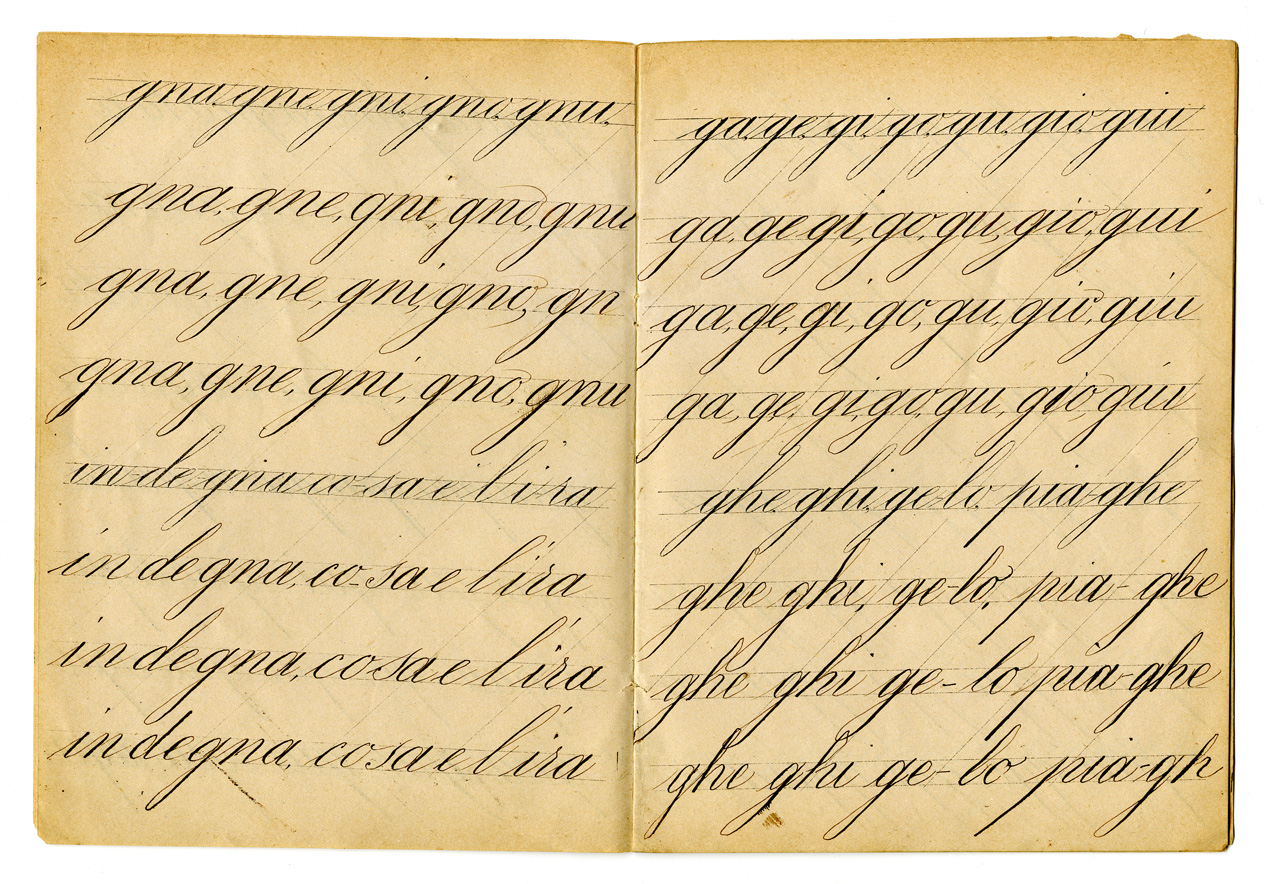 gna, gne, gni, gno, gnu,
gna, gne, gni, gno, gnu
gna, gne, gni, gno, gn
gna, gne, gni, gno, gnu
in-de-gna co-sa e l'i-ra
in degna, co-sa e l'ira
in degna, cosa e l'ira
in degna, cosa e l'ira
ga, ge, gi, go, gu, gio, giu
ga, ge gi, go, gu, gio, giu
ga, ge, gi, go, gu, gio, giu
ga, ge, gi, go, gu, gio, giu
ghe, ghi, ge-lo, pia-ghe
ghe ghi, ge-lo, pia-ghe
ghe ghi ge-lo pia-ghe
ghe ghi ge-lo pia-gh